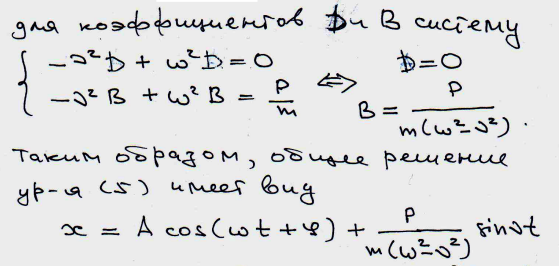 для коэффициентов D и B систему
{ -ν²D + ω²D = 0 ⇔ D = 0
-ν²B + ω²B = P/m B = P/(m(ω²-ν²)).
Таким образом, общее решение
ур-я (5) имеет вид
x = A cos(ωt + φ) + P/(m(ω²-ν²)) sin νt